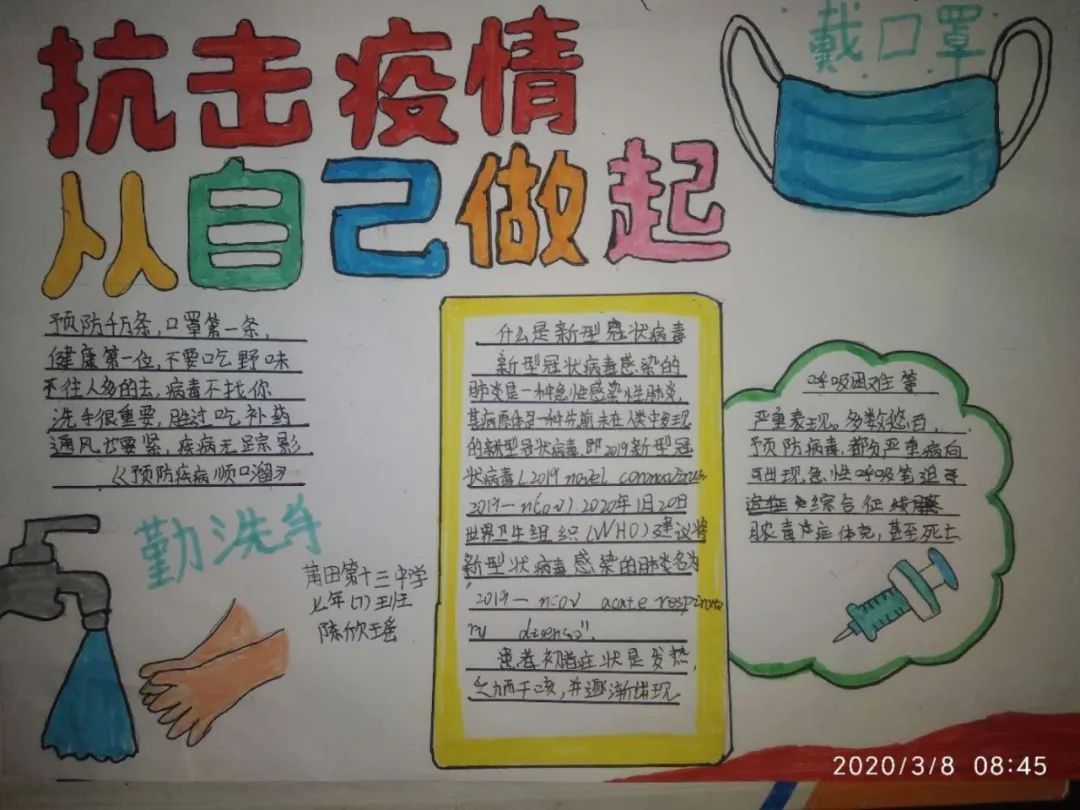 抗击疫情
从自己做起
戴口罩
预防千万条,口罩第一条,
健康第一位,不要吃野味
不往人多的去,病毒不找你
洗手很重要,胜过吃补药
通风也要紧,疾病无踪影
《预防疾病顺口溜》
勤洗手
莆田第十三中学
七年(7)班
陈欣瑶
什么是新型冠状病毒
新型冠状病毒感染的
肺炎是一种急性感染性肺炎,
其病原体是一种先前未在人类中发现
的新型冠状病毒,即2019新型冠
状病毒(2019 novel coronavirus
2019-nCoV)2020年1月20日
世界卫生组织(WHO)建议将
新型状病毒感染的肺炎名为
"2019-nCoV acate respirato
ry disense".
患者初始症状是发热,
乏力而干咳,并逐渐出现
呼吸困难等
严重表现。多数
预防病毒,都分严重病向
可出现急性呼吸窘迫
综合征
脓毒症休克,甚至死亡
2020/3/8 08:45